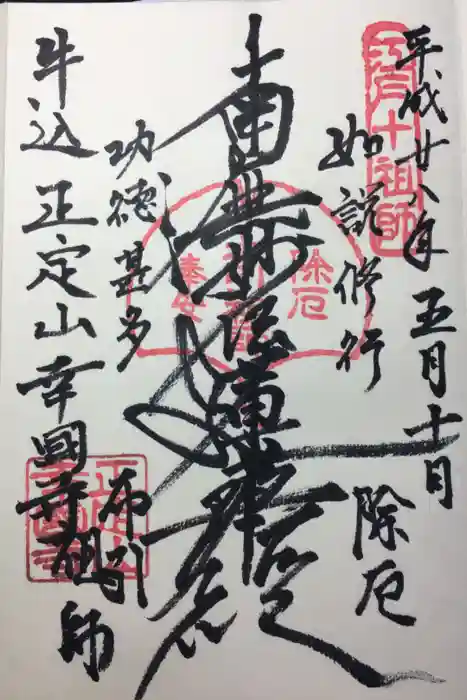 平成廿八年五月十日
江戸十祖師
如説修行
除厄
除厄
南無妙法蓮華経
功徳甚多
布引
祖師
牛込 正定山幸國寺